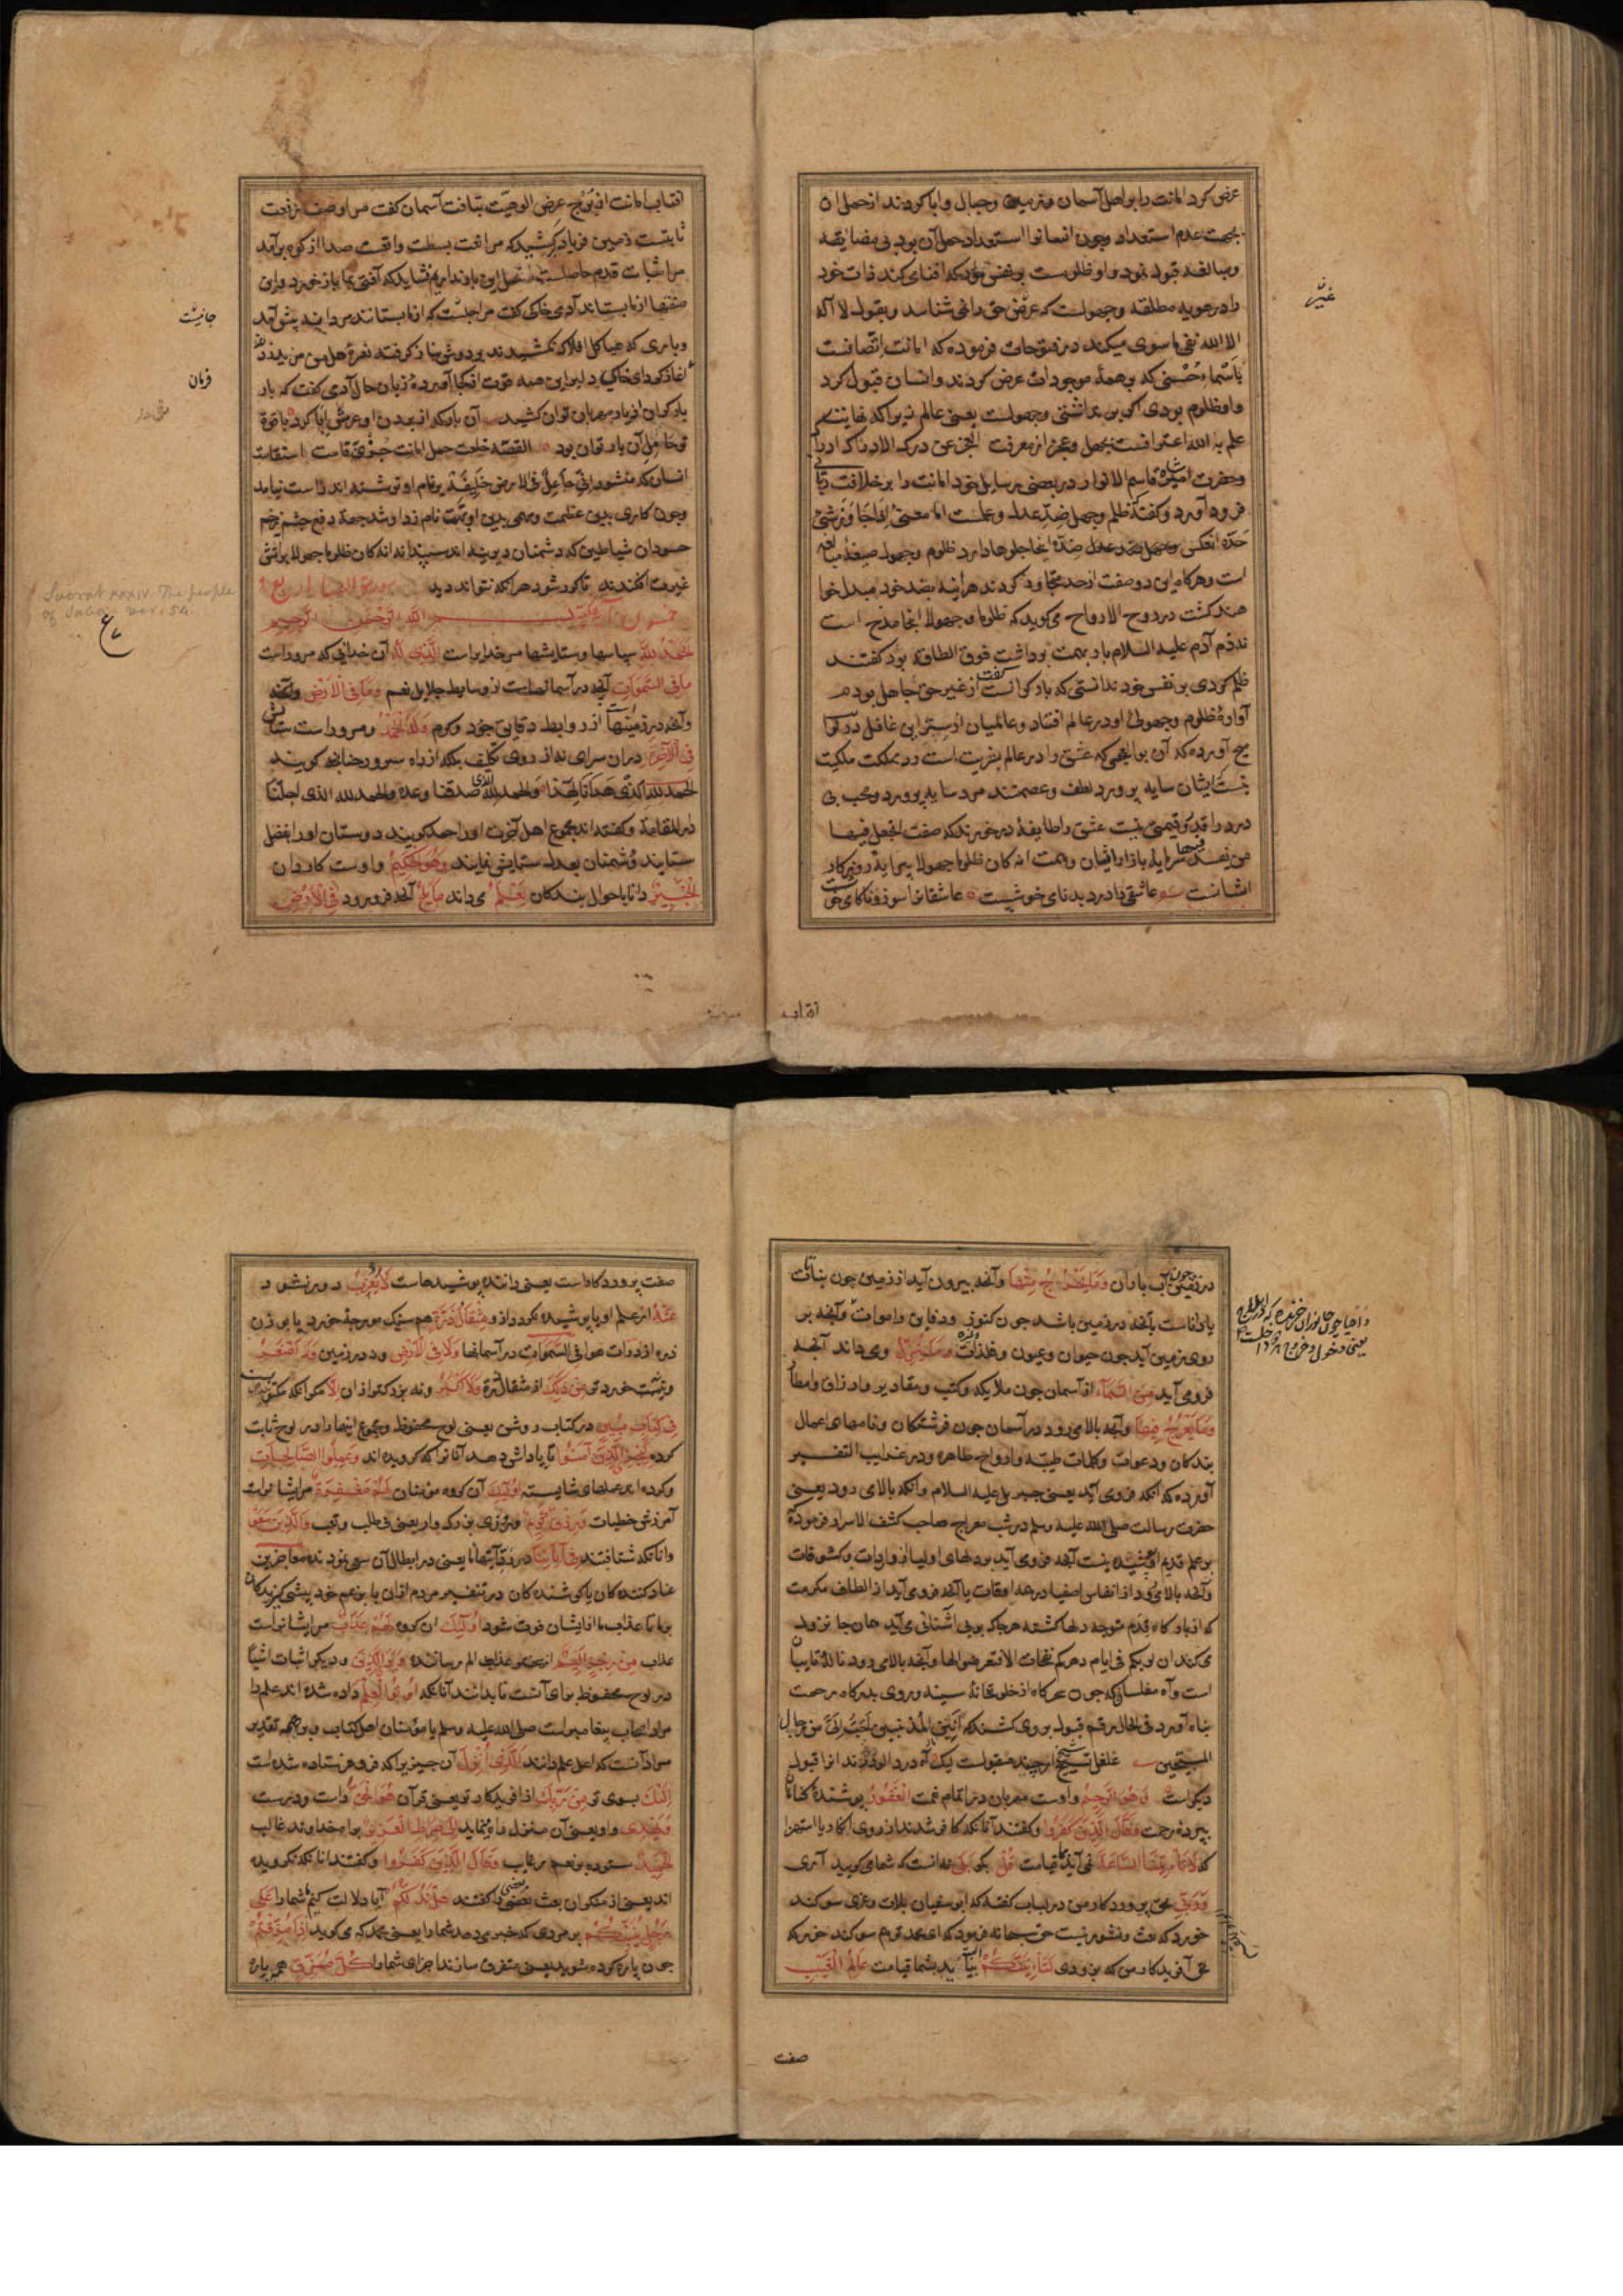 عرض کرد امانت را بر اهل آسمان و زمین و جبال و ابا کردند از حمل ان
بجهت عدم استعداد و چون انسانرا استعداد حمل آن بود بی مضایقه
را در هویه مطلقه و جهولست که غیر حق را نمی شناسد و بقول لا اله
الا الله نفی ما سوی میکند در فتوحات فرموده که امانت اتصافست
باسماء حسنی که بر همهٔ موجودات عرض کردند و انسان قبول کرد
علم به الله اعترافست بجهل و عجز از معرفت العجز عن درک الادراک ادراک
و حضرت امیر شاه قاسم الانوار در بعضی رسایل خود امانت را بر خلافت
فرود آورده و گفته ظلم و جهل ضد عدل و علمست
است و هرگاه این دو صفت از حد تجاوز کردند هر آینه بضد خود مبدل خوا
هند گشت در روح الارواح می کوید که ظلوما و جهولا اینجا مدح است
نه ذم آدم علیه السلام بار بهمت برداشت فوق الطاقه بود گفتند
ظلم کردی بر نفس خود ندانستی که بار گرانست گفت از غیر حق جاهل بودم
آوازهٔ ظلومی و جهولی او در عالم افتاد و عالمیان از سر این غافل
نیست ایشان سایه پرورد لطف و عصمتند مرد سایه پرورد و محب بی
درد را قدر و قیمتی نیست عشق را طایفهٔ درخورند که صفت اتجعل فیها
من یفسد فیها سرمایهٔ بازار ایشان و تهمت انه کان ظلوما جهولا پیرایهٔ روزکار
ایشانست عاشقی را درد بدنامی خوشست عاشقانرا سوز و ناکامی خوشست
غیر
افتاب
افتاب امانت از برج عرض الوهیت بتافت آسمان گفت مرا وصف رفعت
ثابتست زمین فریاد برکشید که مرا نعت بسطت واقعست صدا از کوه برآمد
آغاز کرد ای خاکی دلیر این همه قوت از کجا آوردهٔ زبان حال آدمی گفت که بار
القصه خلعت حمل امانت جز بر قامت استقامت
انسان که منشور انی جاعل فی الارض خلیفة بر نام او نوشته اند راست نیامد
و چون کاری بدین عظمت و مهمی بدین ابهت نام زد او شد جهة دفع چشم زخم
حسودان شیاطین که دشمنان دیرینه اند سپند انه کان ظلوما جهولا بر آتش
غیرت افکندند تا کور شود هر آنکه نتواند دید
الله الرحمن الرحیم
الحمد لله سپاسها و ستایشها مر خدایراست الذی له آن خدائی که مر وراست
ما فی السموات آنچه در آسمانهاست از وسایط جلایل نعم و ما فی الارض و آنچه
و آنچه در زمینهاست از روابط دقایق جود و کرم و له الحمد و مر وراست ستایش
فی الاخرة در آن سرای نه از روی تکلیف بلکه از راه سرور چنانچه گویند
الحمد لله الذی هدانا لهذا و الحمد لله الذی صدقنا وعده و الحمد لله الذی احلنا
دار المقامة و گفته اند مجموع اهل آخرت او را حمد گویند دوستان او را بفضل
ستایند و دشمنان بعدل ستایش نمایند و هو الحکیم و اوست کاردان
الخبیر دانا باحوال بندکان یعلم می داند ما یلج آنچه فرو رود فی الارض
Suorat xxxiv. The people
of Saba. ver. 54.
در زمین چون آب باران و ما یخرج منها و آنچه بیرون آید از زمین چون نباتات
یا داناست بآنچه در زمین باشد چون کنوز و دفاین و اموات و آنچه بر
روی زمین آید چون حیوان و عیون و فلذات و غیره و ما ینزل و می داند آنچه
فرو می آید من السماء از آسمان چون ملایکه و کتب و مقادیر و ارزاق و امطار
و ما یعرج فیها و آنچه بالا می رود در آسمان چون فرشتکان و نامهای اعمال
بندکان و دعوات و کلمات طیبه و ارواح طاهره و در غرایب التفسیر
آورده که آنکه فرو می آید یعنی جبریل علیه السلام و آنکه بالا می رود یعنی
حضرت رسالت صلی الله علیه و سلم در شب معراج صاحب کشف الاسرار فرموده
بر علم قدیم او پوشیده نیست آنچه فرو می آید بر دلهای اولیا از واردات و کشوفات
و آنچه بالا می رود از انفاس اصفیا در همه اوقات یا آنچه فرو می آید از الطاف مکرمت
که از بارگاه قدم متوجه دلها گشته هر جا که بوی آشنائی می آید همان جا نزول
می کند ان لربکم فی ایام دهرکم نفحات الا فتعرضوا لها و آنچه بالا می رود ناله تایبان
است و آه مفلسان که چون سحرگاه از خلوتخانهٔ سینه روی بدرگاه رحمت
پناه آورد فی الحال رقم قبول بر وی کشند که انین المذنبین احب الی من زجل
دیگراست و هو الرحیم و اوست مهربان در اتمام نعمت الغفور پوشندهٔ گناهان
ببردهٔ رحمت و قال الذین کفروا و گفتند آنانکه کافر شدند از روی انکار یا استهزا
که لا تأتینا الساعة نمی آید بما قیامت قل بگو بلی نه چنانست که شما می گویید آری
و ربی بحق پروردگار من در لباب گفته که ابو سفیان بلات و عزی سوگند
خورد که بعث و نشور نیست حق سبحانه فرمود که ای محمد تو هم سوگند خور که
بحق آفریدکار من که بزودی لتأتینکم بیاید البته بشما قیامت عالم الغیب
صفت
صفت پروردگار است یعنی داننده پوشیدهاست لا یعزب دور نشود
عنه از علم او یا پوشیده نگردد ازو مثقال ذرة هم سنک مورچهٔ خرد یا بوزن
ذره از ذرات هوا فی السموات در آسمانها و لا فی الارض و نه در زمین و لا اصغر
و نیست خردتر من ذلک از مثقال ذرة و لا اکبر و نه بزرگتر از ان الا مگر آنکه مکتوبست
فی کتاب مبین در کتاب روشن یعنی لوح محفوظ و مجموع اینها را در لوح ثابت
کرده لیجزی الذین آمنوا تا پاداش دهد آنانرا که گرویده اند و عملوا الصالحات
و کرده اند عملهای شایسته اولئک آن گروه مؤمنان لهم مغفرة مر ایشانراست
آمرزش خطیات و رزق کریم و روزی بزرگوار یعنی بی طلب و تعب و الذین سعوا
و انانکه شتافتند فی آیاتنا در رد آیتهای ما یعنی در ابطال آن سعی نمودند معاجزین
عنادکننده کان یا کوشنده کان در تنفیر مردم از ان یا بزعم خود پیشی گیرندکان
بر ما تا عذاب ما از ایشان فوت شود اولئک ان گروه لهم عذاب مر ایشانراست
عذاب من رجز الیم از سختی عذاب الم رساننده و یری الذین و دیگر اثبات اشیا
در لوح محفوظ برای آنست تا بدانند آنانکه اوتوا العلم داده شده اند علم را
مراد اصحاب پیغامبر است صلی الله علیه و سلم یا مؤمنان اهل کتاب و بر همه تقدیر
مراد آنست که اهل علم دانند الذی انزل آن چیزیرا که فرو فرستاده شده است
الیک بسوی تو من ربک از آفریدکار تو یعنی قرآن هو الحق راست و درست
و یهدی و او یعنی آن منزل راه مینماید الی صراط العزیز براه خداوند غالب
الحمید ستوده بر نعم بی غایب و قال الذین کفروا و گفتند انانکه نگرویده
اند یعنی از منکران بعث بعضی بعضی را گفتند هل ندلکم آیا دلالت کنیم شما را علی
رجل ینبئکم بر مردی که خبر می دهد شما را یعنی محمد که می گوید اذا مزقتم
چون پاره کرده شوید یعنی متفرق سازند اجزای شما را کل ممزق همه پاره